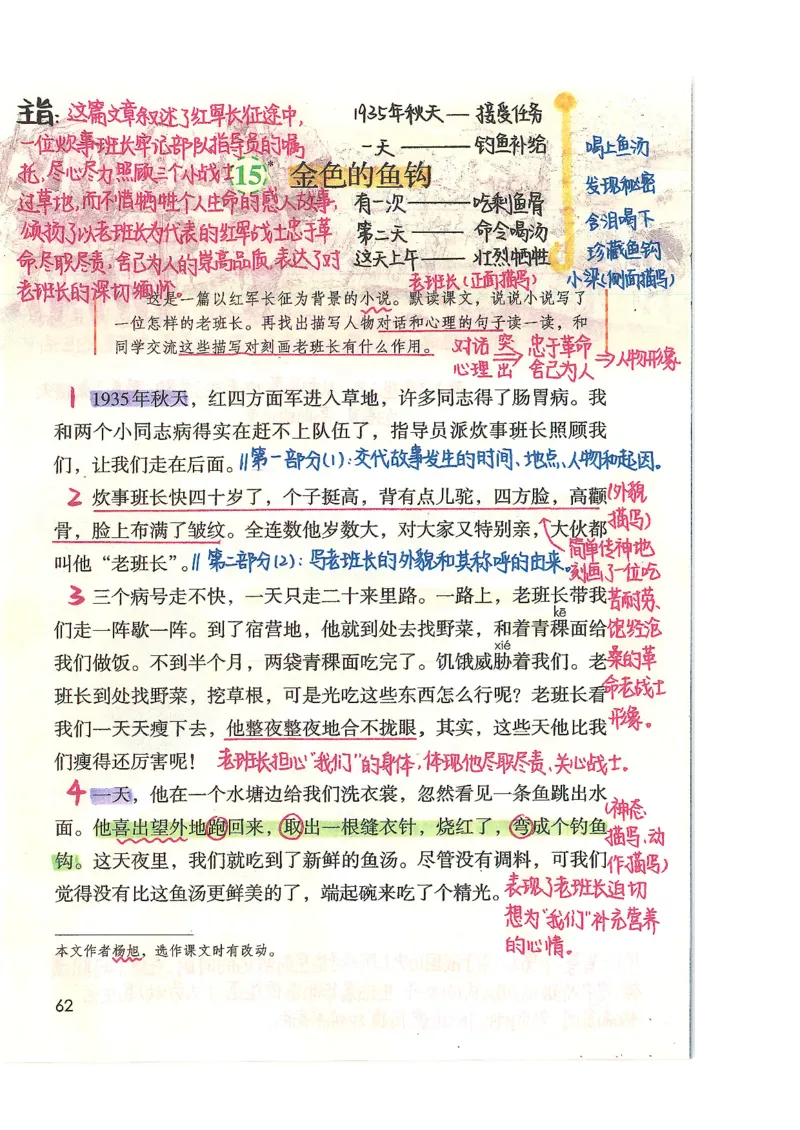 主旨：这篇文章叙述了红军长征途中，
一位炊事班长牢记部队指导员的嘱
托，尽心尽力照顾三个小战士
过草地，而不惜牺牲个人生命的感人故事，
颂扬了以老班长为代表的红军战士忠于革
命、尽职尽责、舍己为人的崇高品质，表达了对
老班长的深切缅怀。
15* 金色的鱼钩
1935年秋天——接受任务
一天——钓鱼补给
有一次——吃剩鱼骨
第二天——命令喝汤
这天上午——壮烈牺牲
老班长（正面描写）
喝上鱼汤
发现秘密
含泪喝下
珍藏鱼钩
小梁（侧面描写）
这是一篇以红军长征为背景的小说。默读课文，说说小说写了
一位怎样的老班长。再找出描写人物对话和心理的句子读一读，和
同学交流这些描写对刻画老班长有什么作用。
对话 突 忠于革命
心理 出 舍己为人
→人物形象
1 1935年秋天，红四方面军进入草地，许多同志得了肠胃病。我
和两个小同志病得实在赶不上队伍了，指导员派炊事班长照顾我
们，让我们走在后面。//第一部分（1）：交代故事发生的时间、地点、人物和起因。
2 炊事班长快四十岁了，个子挺高，背有点儿驼，四方脸，高颧
骨，脸上布满了皱纹。全连数他岁数大，对大家又特别亲，大伙都
叫他“老班长”。//第二部分（2）：写老班长的外貌和其称呼的由来。
（外貌
描写）
简单传神地
刻画了一位吃
苦耐劳、
饱经沧
桑的革
命老战士
形象。
3 三个病号走不快，一天只走二十来里路。一路上，老班长带我
kē
们走一阵歇一阵。到了宿营地，他就到处去找野菜，和着青稞面给
xié
我们做饭。不到半个月，两袋青稞面吃完了。饥饿威胁着我们。老
班长到处找野菜，挖草根，可是光吃这些东西怎么行呢？老班长看
我们一天天瘦下去，他整夜整夜地合不拢眼，其实，这些天他比我
们瘦得还厉害呢！ 老班长担心“我们”的身体，体现他尽职尽责、关心战士。
4 一天，他在一个水塘边给我们洗衣裳，忽然看见一条鱼跳出水
面。他喜出望外地跑回来，取出一根缝衣针，烧红了，弯成个钓鱼
钩。这天夜里，我们就吃到了新鲜的鱼汤。尽管没有调料，可我们
觉得没有比这鱼汤更鲜美的了，端起碗来吃了个精光。
（神态
描写、动
作描写）
表现了老班长迫切
想为“我们”补充营养
的心情。
本文作者杨旭，选作课文时有改动。
62